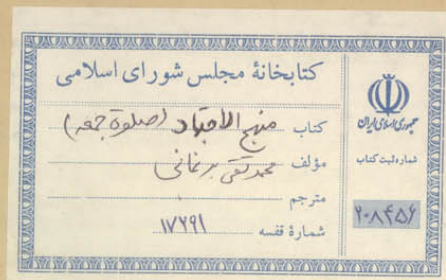 کتابخانهٔ مجلس شورای اسلامی
کتاب منهج الاجتهاد (صلوة جمعه)
مؤلف محمد تقی برغانی
مترجم
شمارهٔ قفسه ۱۷۲۹۱
جمهوری اسلامی ایران
شماره ثبت کتاب
۲۰۸۴۵۶